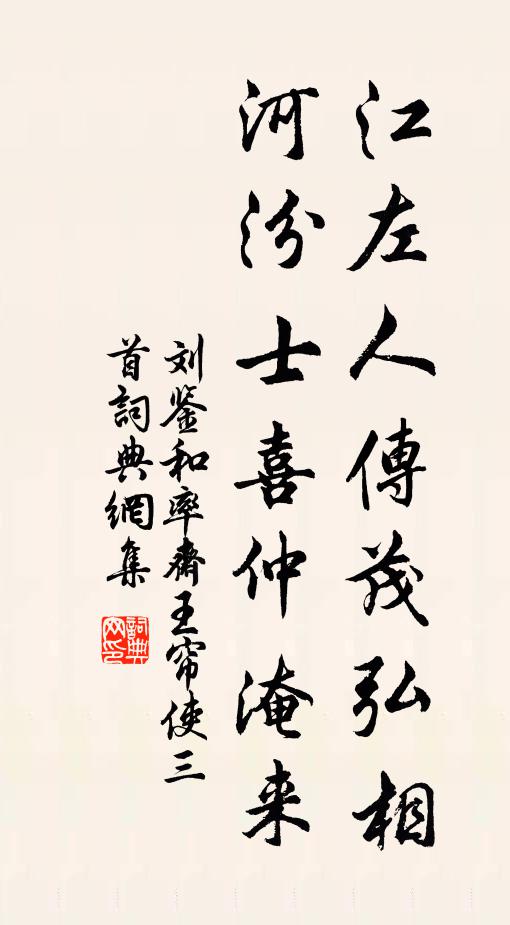 江左人傳茂弘相
河汾士喜仲淹来
刘鉴和率齋王帘使三
首詞典網集
詞典網印